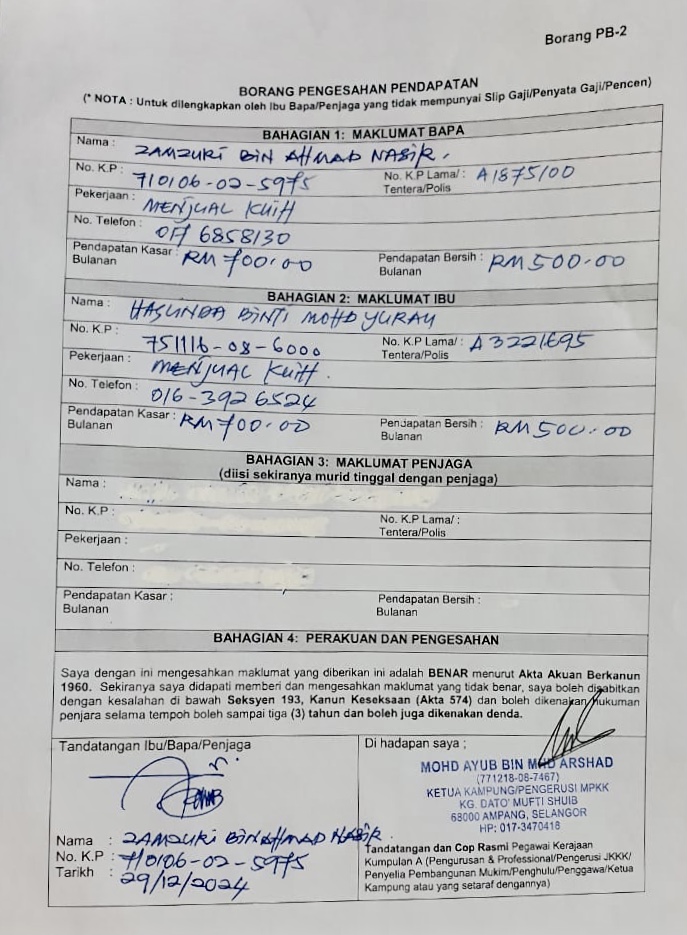 Borang PB-2
BORANG PENGESAHAN PENDAPATAN
(* NOTA : Untuk dilengkapkan oleh Ibu Bapa/Penjaga yang tidak mempunyai Slip Gaji/Penyata Gaji/Pencen)
BAHAGIAN 1: MAKLUMAT BAPA
Nama : ZAMZURI BIN AHMAD NASIR.
No. K.P : 710106-02-5975 No. K.P Lama/ : A1875100
Tentera/Polis
Pekerjaan : MENJUAL KUIH
No. Telefon : 017 6858130
Pendapatan Kasar : RM 700.00 Pendapatan Bersih : RM 500.00
Bulanan Bulanan
BAHAGIAN 2: MAKLUMAT IBU
Nama : HASLINDA BINTI MOHD
No. K.P : 751116-08-6000 No. K.P Lama/ : A3221695
Tentera/Polis
Pekerjaan : MENJUAL KUIH.
No. Telefon : 016-3926524
Pendapatan Kasar : RM 700.00 Pendapatan Bersih : RM 500.00
Bulanan Bulanan
BAHAGIAN 3: MAKLUMAT PENJAGA
(diisi sekiranya murid tinggal dengan penjaga)
Nama :
No. K.P : No. K.P Lama/ :
Tentera/Polis
Pekerjaan :
No. Telefon :
Pendapatan Kasar : Pendapatan Bersih :
Bulanan Bulanan
BAHAGIAN 4: PERAKUAN DAN PENGESAHAN
Saya dengan ini mengesahkan maklumat yang diberikan ini adalah BENAR menurut Akta Akuan Berkanun
1960. Sekiranya saya didapati memberi dan mengesahkan maklumat yang tidak benar, saya boleh disabitkan
dengan kesalahan di bawah Seksyen 193, Kanun Keseksaan (Akta 574) dan boleh dikenakan hukuman
penjara selama tempoh boleh sampai tiga (3) tahun dan boleh juga dikenakan denda.
Tandatangan Ibu/Bapa/Penjaga
Nama : ZAMZURI BIN AHMAD NASIR
No. K.P : 710106-02-5975
Tarikh : 29/12/2024
Di hadapan saya ;
MOHD AYUB BIN MHD ARSHAD
(771218-08-7467)
KETUA KAMPUNG/PENGERUSI MPKK
KG. DATO' MUFTI SHUIB
68000 AMPANG, SELANGOR
HP: 017-3470416
Tandatangan dan Cop Rasmi Pegawai Kerajaan
Kumpulan A (Pengurusan & Professional/Pengerusi JKKK/
Penyelia Pembangunan Mukim/Penghulu/Penggawa/Ketua
Kampung atau yang setaraf dengannya)